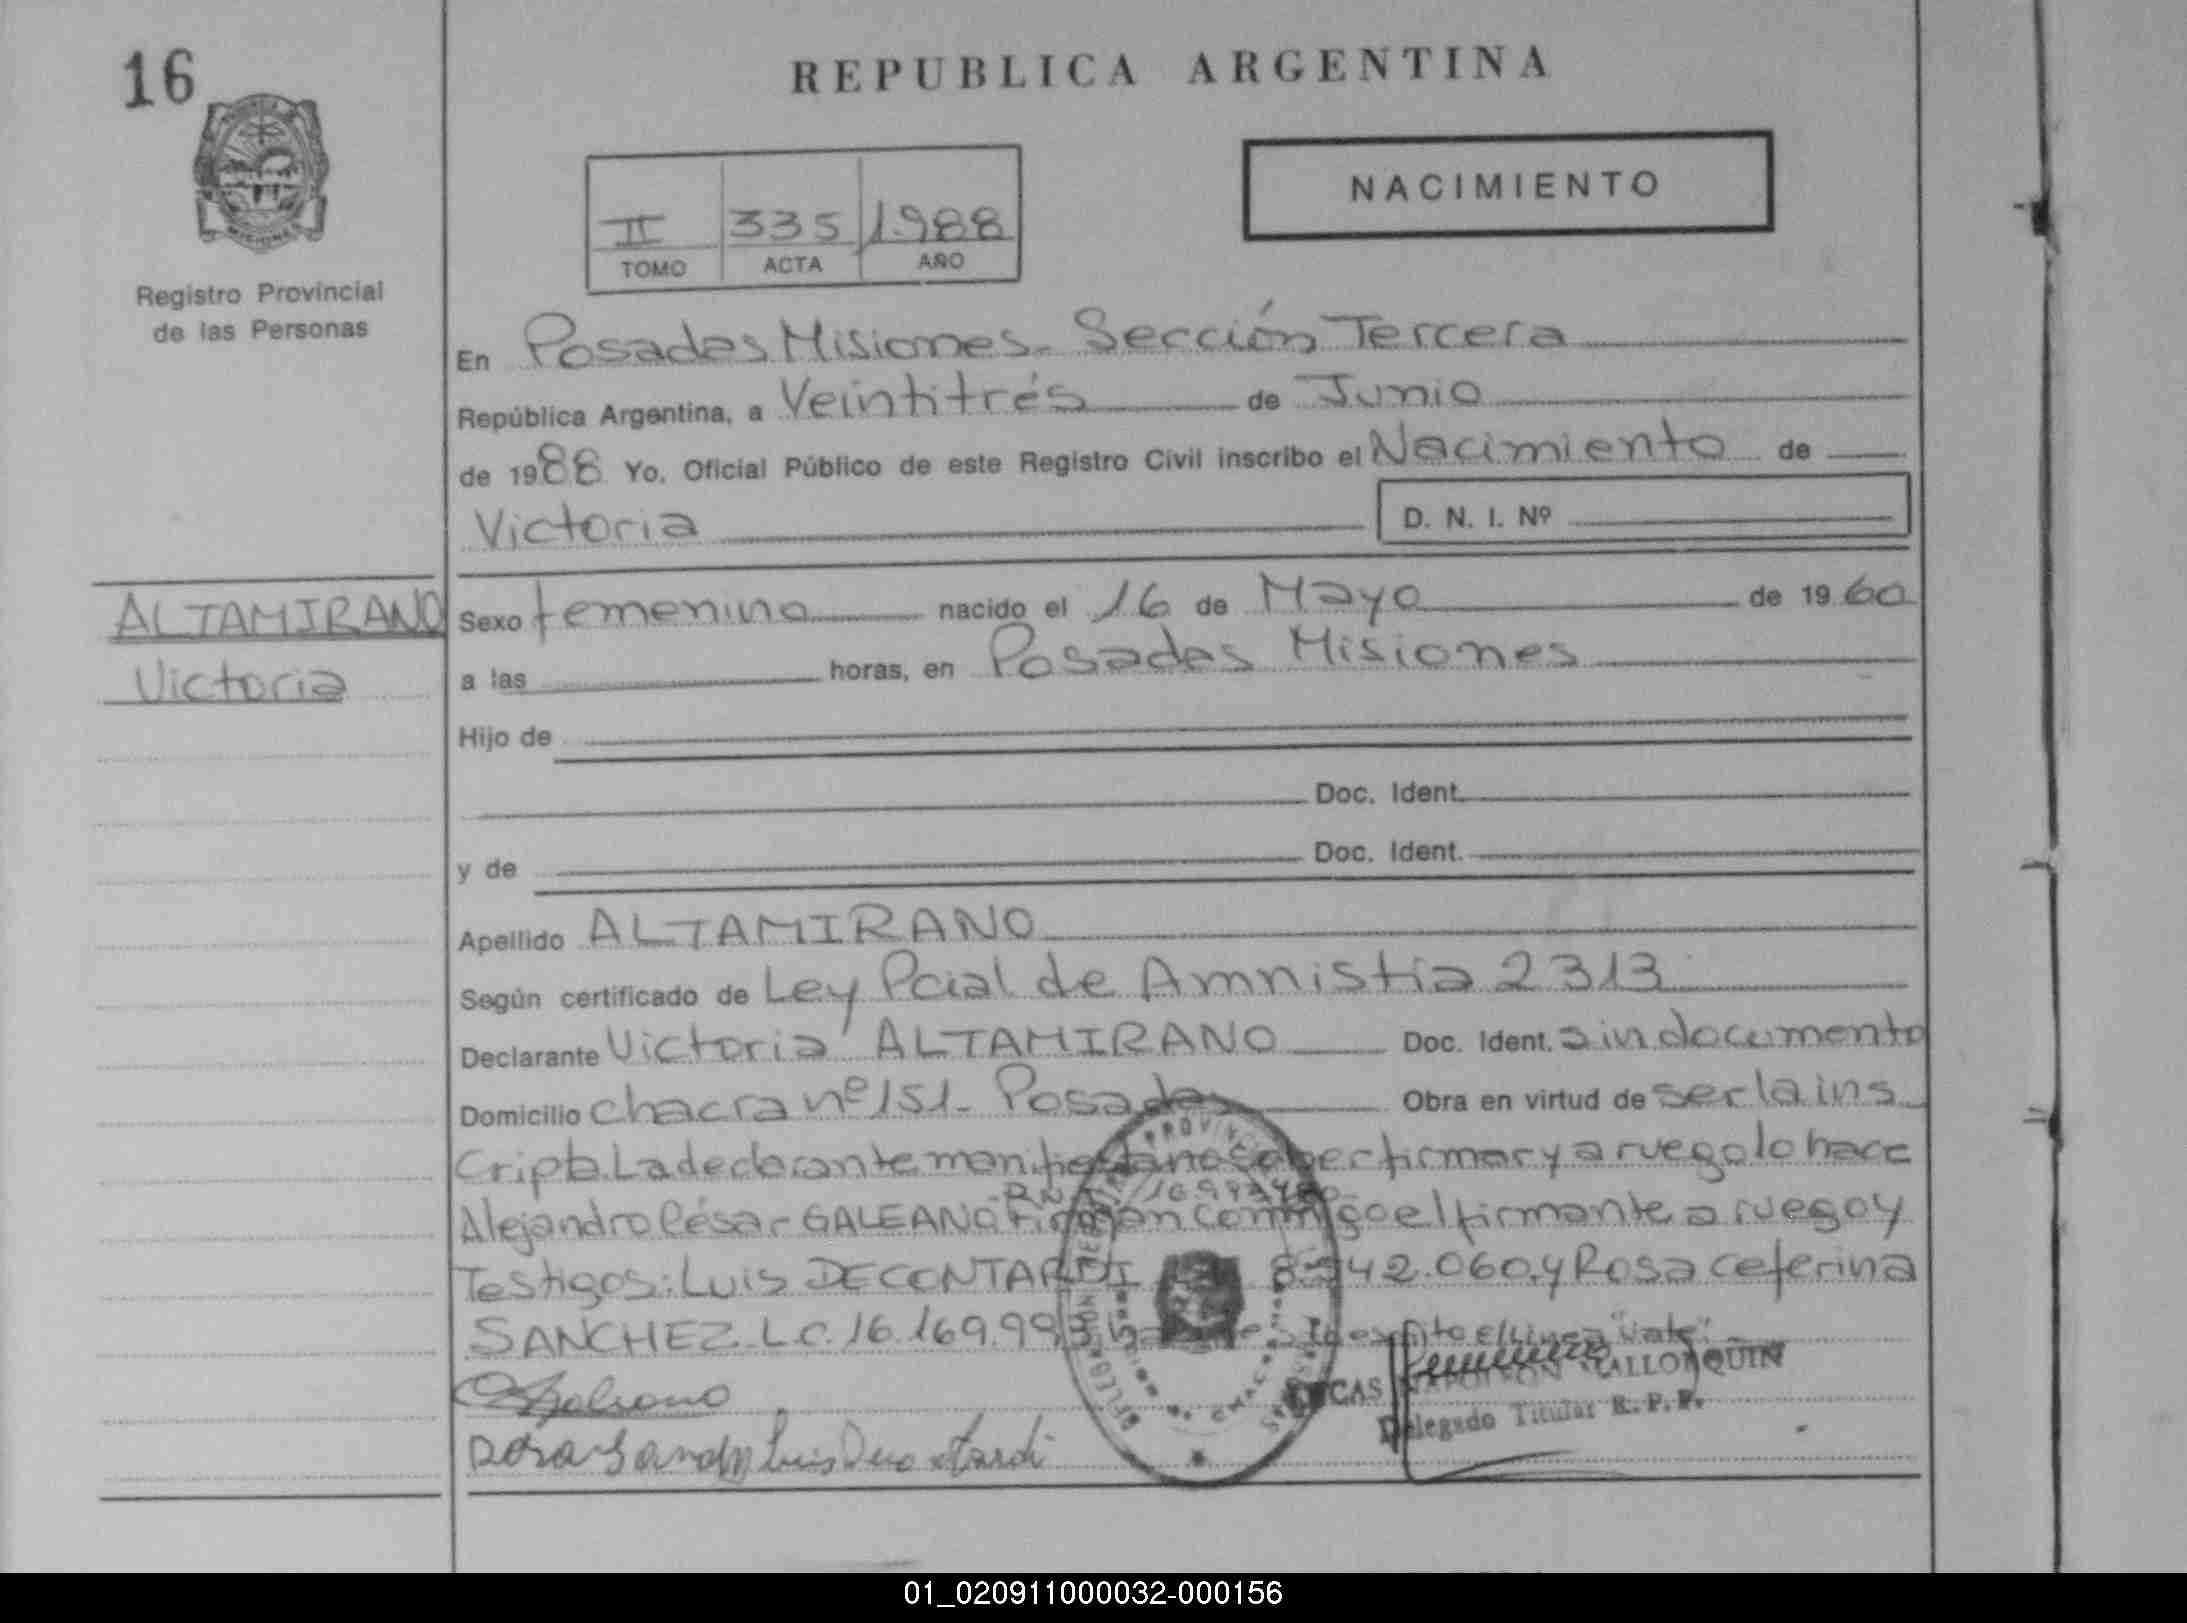 16
REPUBLICA ARGENTINA
MISIONES
Registro Provincial
de las Personas
II 335 1988
TOMO ACTA AÑO
NACIMIENTO
En Posadas Misiones. Sección Tercera
República Argentina, a Veintitrés de Junio
de 1988 Yo, Oficial Público de este Registro Civil inscribo el Nacimiento de
Victoria D. N. I. Nº
ALTAMIRANO
Victoria
Sexo femenino nacido el 16 de Mayo de 1960
a las horas, en Posadas Misiones
Hijo de
Doc. Ident.
y de Doc. Ident.
Apellido ALTAMIRANO
Según certificado de Ley Pcial de Amnistía 2313
Declarante Victoria ALTAMIRANO Doc. Ident. sin documento
Domicilio Chacra nº 151- Posadas Obra en virtud de ser la ins
cripta. La declarante manifiesta no saber firmar y a ruego lo hace
Alejandro César GALEANO. Firman conmigo el firmante a ruego y
Testigos: Luis DECONTARDI 042.060. y Rosa Ceferina
SANCHEZ L.C. 16.169.993 "Vale".
LUCAS NAPOLEON MALLORQUIN
Delegado Titular R.P.P.
01_020911000032-000156